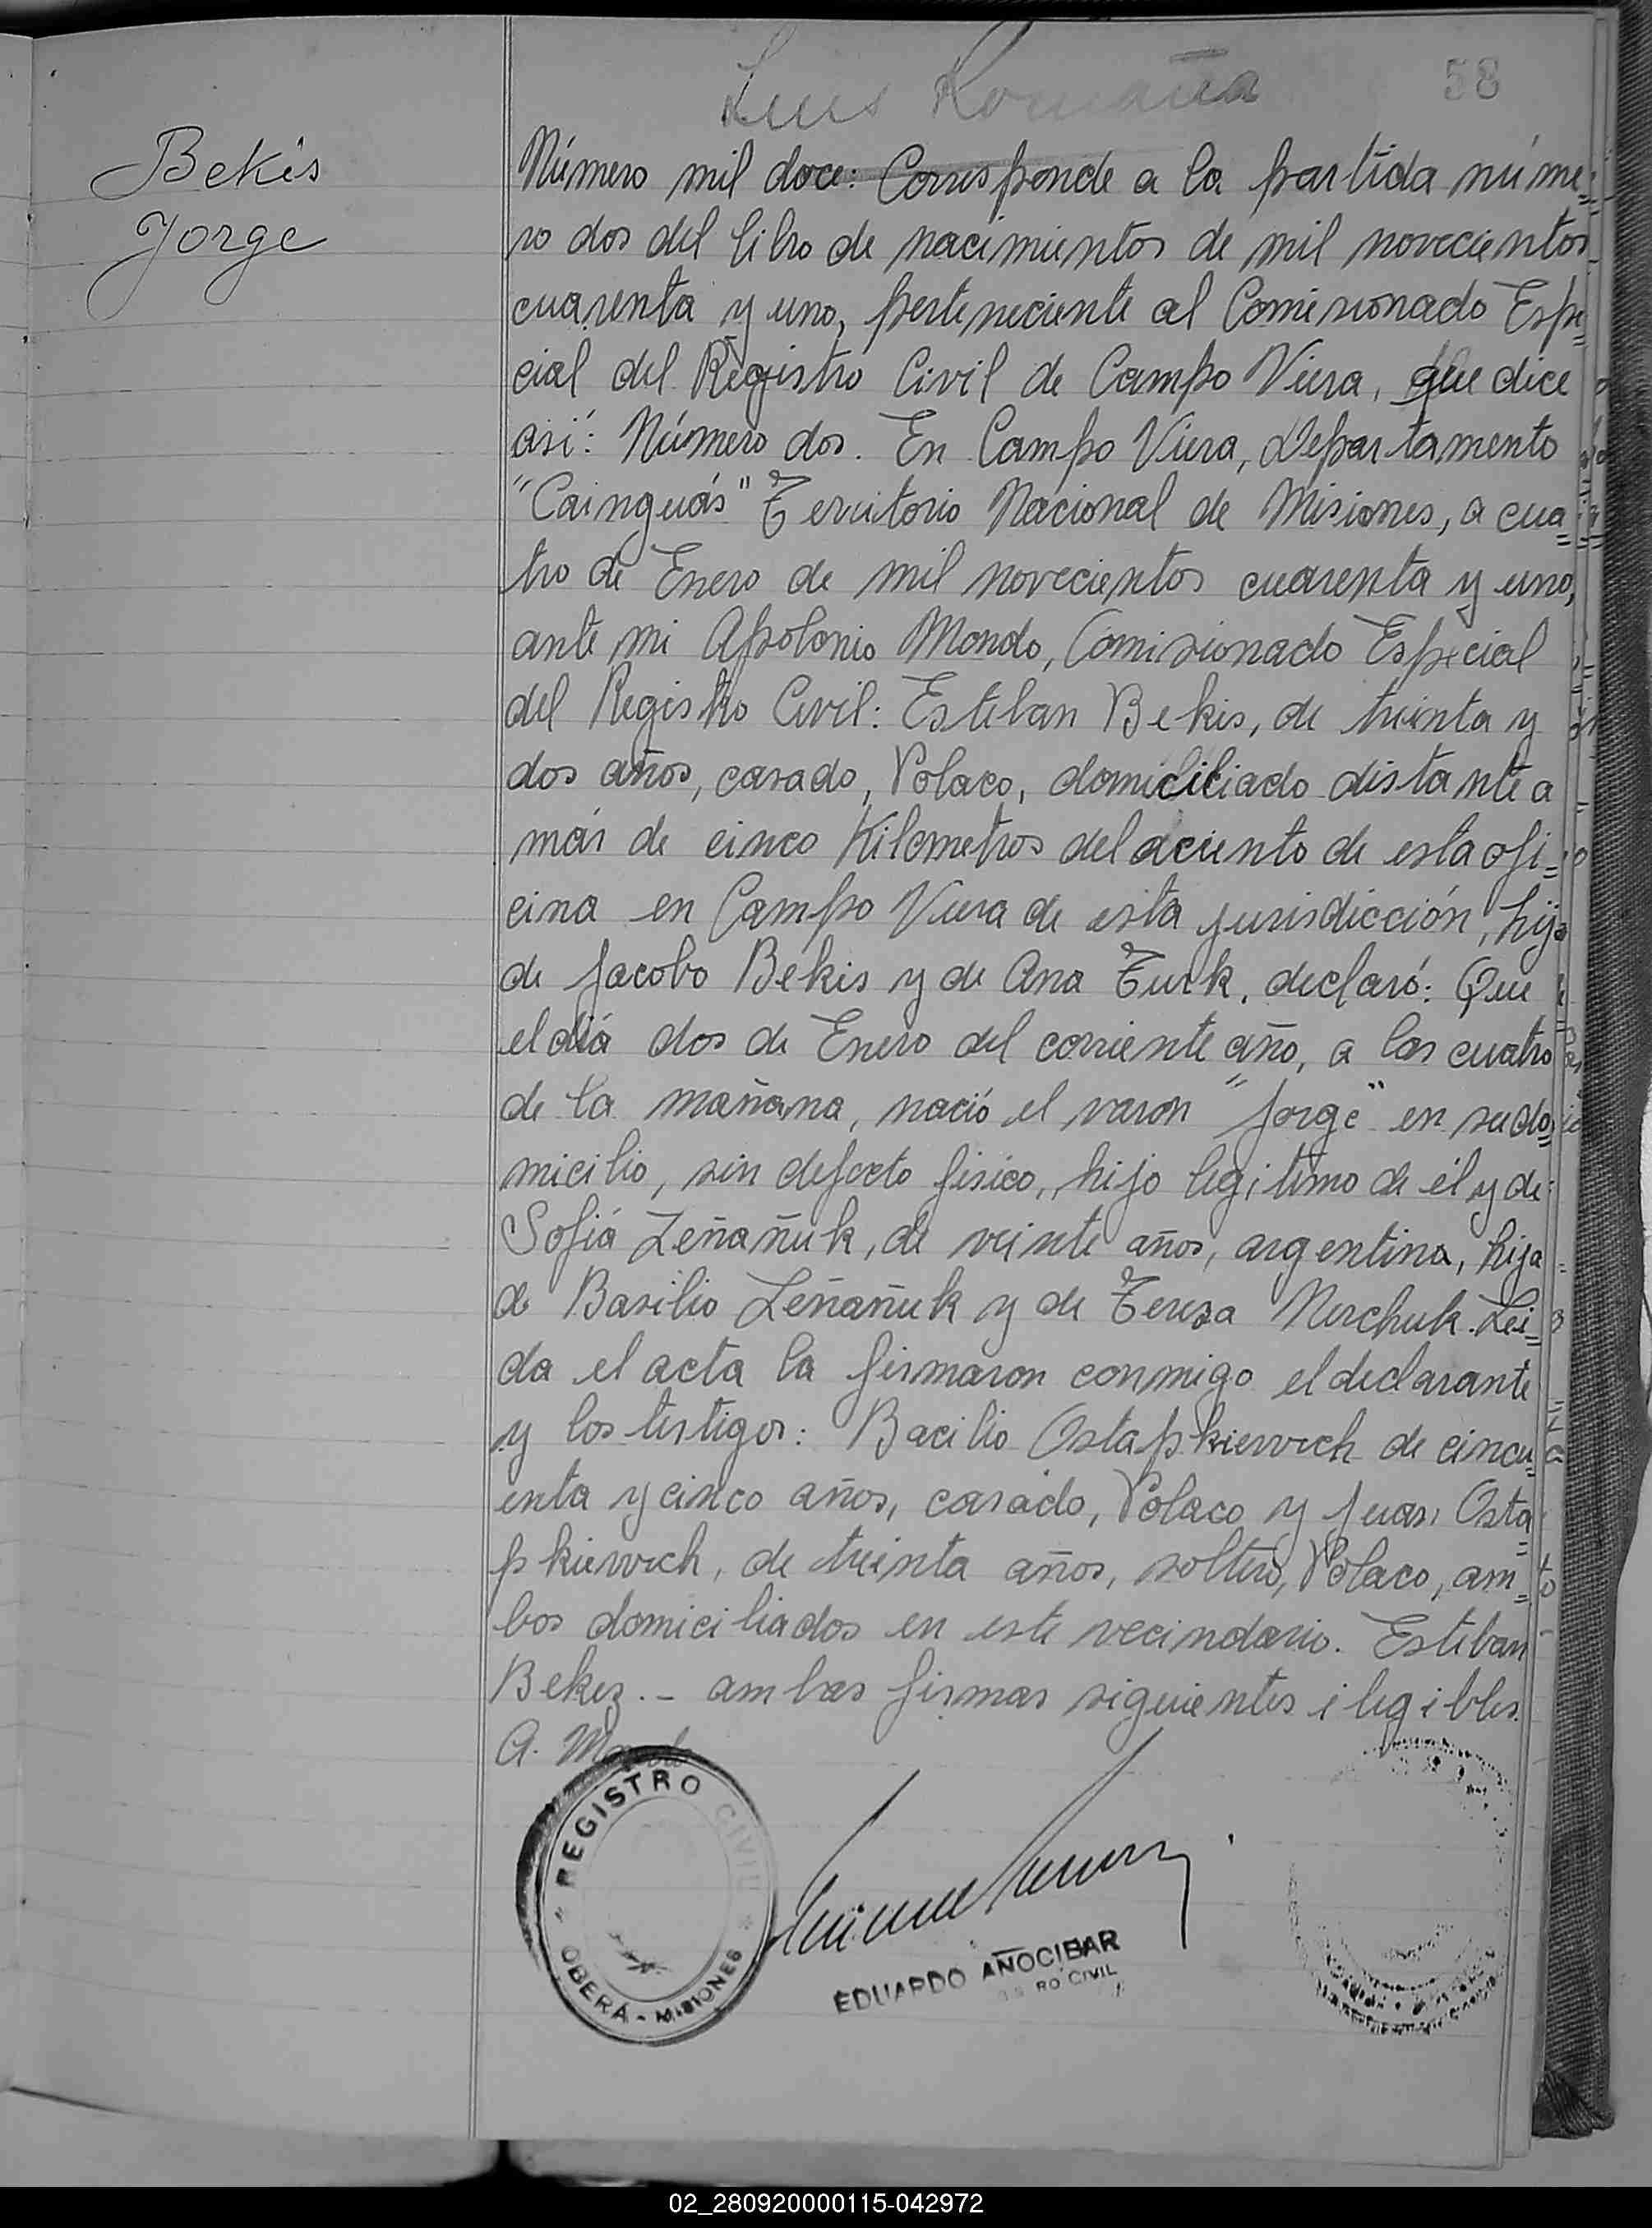 Luis Romaña
58
Bekis
Jorge
Número mil doce: Corresponde a la partida núme=
ro dos del libro de nacimientos de mil novecientos
cuarenta y uno, perteneciente al Comisionado Espe=
cial del Registro Civil de Campo Viera, que dice
asi: Número dos. En Campo Viera, Departamento
"Cainguás" Territorio Nacional de Misiones, a cua=
tro de Enero de mil novecientos cuarenta y uno,
ante mi Apolonio Mondo, Comisionado Especial
del Registro Civil: Esteban Bekis, de treinta y
dos años, casado, Polaco, domiciliado distante a
más de cinco Kilometros del aciento de esta ofi=
cina en Campo Viera de esta jurisdicción, hijo
de Jacobo Bekis y de Ana Turk, declaró: Que
el día dos de Enero del corriente año, a las cuatro
de la mañana, nació el varon "Jorge" en su do=
micilio, sin defecto fisico, hijo legitimo de él y de
Sofiá Zeñañuk, de veinte años, argentina, hija
de Basilio Zeñañuk y de Teresa Merchuk. Lei=
da el acta la firmaron conmigo el declarante
y los testigos: Bacilio Ostapkiewich de cincu=
enta y cinco años, casado, Polaco y Juan Osta=
pkiewich, de treinta años, soltero, Polaco, am=
bos domiciliados en este vecindario. Esteban
Bekez.- ambas firmas siguientes ilegibles.
A. Mondo
REGISTRO CIVIL
OBERÁ - MISIONES
EDUARDO AÑOCIBAR
RO CIVIL
02_280920000115-042972